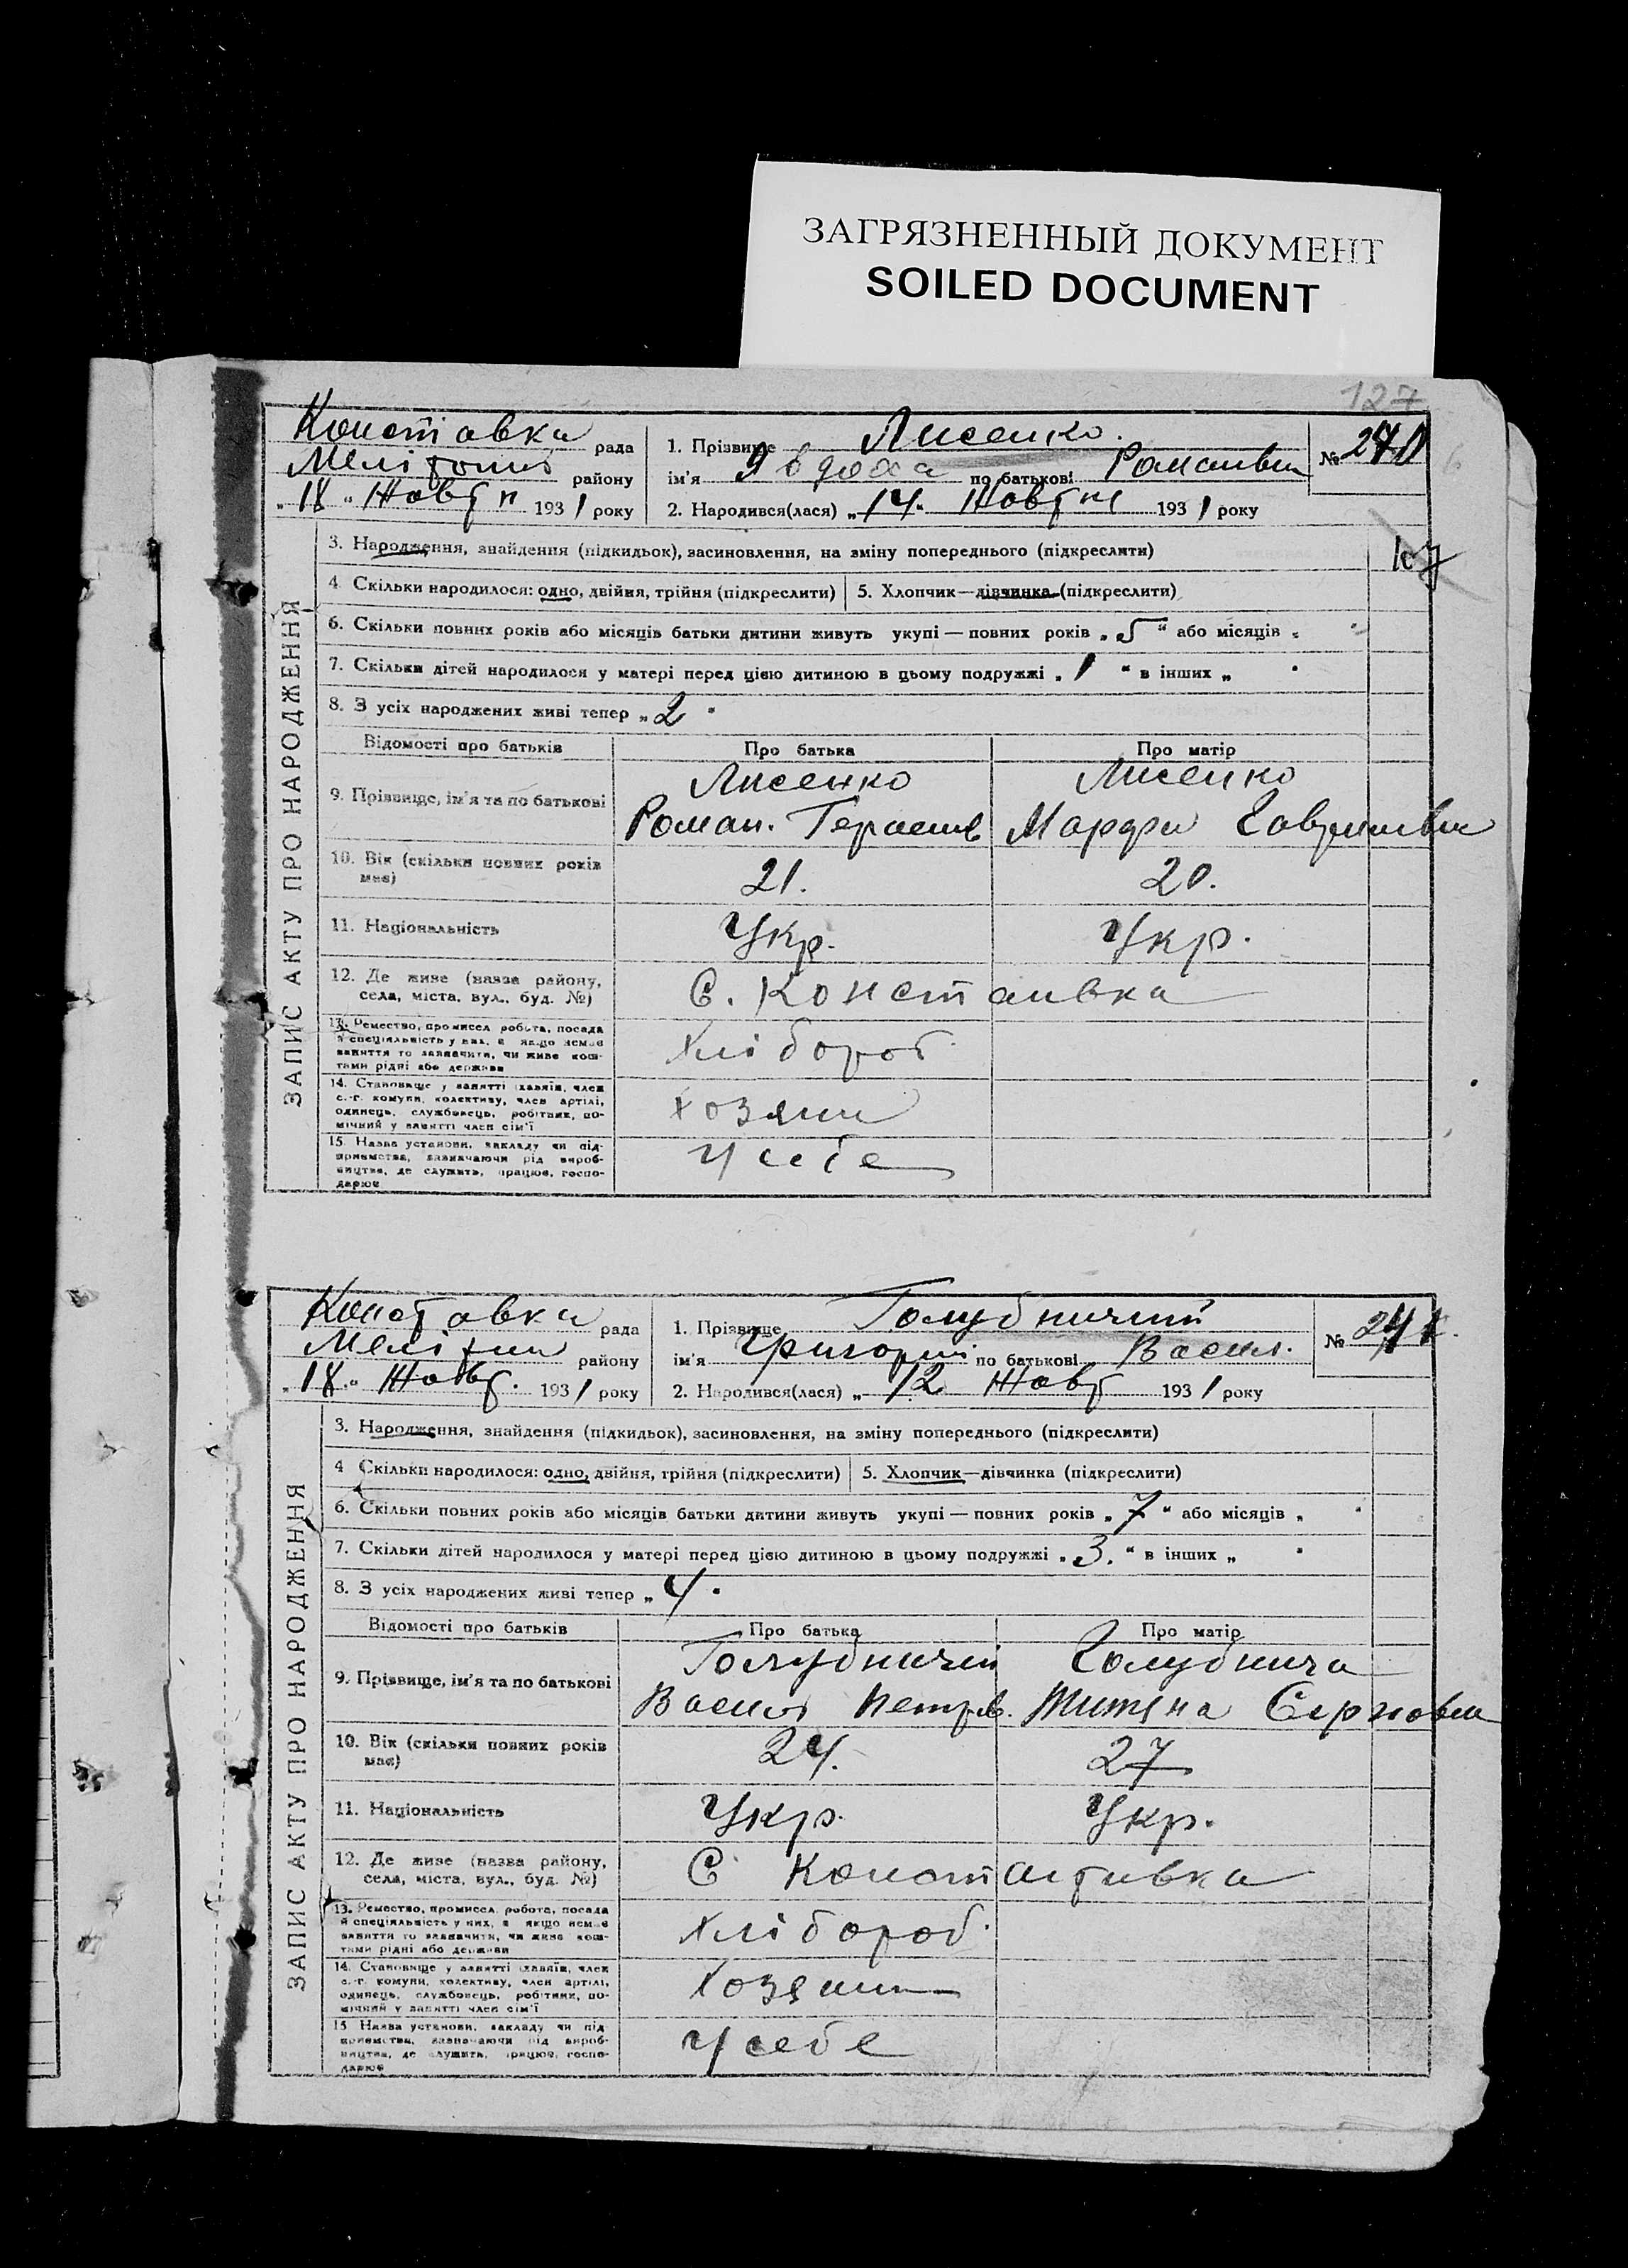 ЗАГРЯЗНЕННЫЙ ДОКУМЕНТ
SOILED DOCUMENT
127
ЗАПИС АКТУ ПРО НАРОДЖЕННЯ
Конставка рада
району
"18" Жовтн 1931 року
1. Прізвище Лисенко
ім'я Явдоха по батькові Романівна
№ 240
2. Народився(лася) "14" Жовтня 1931 року
3. Народження, знайдення (підкидьок), засиновлення, на зміну попереднього (підкреслити)
4 Скільки народилося: одно, двійня, трійня (підкреслити) 5. Хлопчик—дівчинка (підкреслити)
6. Скільки повних років або місяців батьки дитини живуть укупі — повних років „5“ або місяців „
7. Скільки дітей народилося у матері перед цією дитиною в цьому подружжі „1“ в інших „
8. З усіх народжених живі тепер „2"
Відомості про батьків Про батька Про матір
9. Прізвище, ім'я та по батькові
Лисенко Лисенко
Роман. Герасимів Марфа
10. Вік (скільки повних років має) 21. 20.
11. Національність Укр. Укр.
12. Де живе (назва району, села, міста, вул., буд. №) С. Констанивка
13. Ремество, промисел робота, посада й спеціяльність у них, а якщо немає заняття то зазначити, чи живе коштами рідні або держави Хлібороб.
14. Становище у занятті (хазяїн, член с.-г. комуни, колективу, член артілі, одинець, службовець, робітник, помічний у занятті член сім'ї Хозяин
15. Назва установи, закладу чи підприємства, зазначаючи рід виробництва, де служить, працює, господарює У себе
ЗАПИС АКТУ ПРО НАРОДЖЕННЯ
Конставка рада
району
"18" Жовт. 1931 року
1. Прізвище Голубничий
ім'я Григорий по батькові Васил.
№ 241
2. Народився(лася) „12 Жовт 1931 року
3. Народження, знайдення (підкидьок), засиновлення, на зміну попереднього (підкреслити)
4 Скільки народилося: одно, двійня, трійня (підкреслити) 5. Хлопчик—дівчинка (підкреслити)
6. Скільки повних років або місяців батьки дитини живуть укупі — повних років „7“ або місяців „
7. Скільки дітей народилося у матері перед цією дитиною в цьому подружжі „3.“ в інших „
8. З усіх народжених живі тепер „4"
Відомості про батьків Про батька Про матір
9. Прізвище, ім'я та по батькові
Голубничий Голубнича
Васил Петров.
10. Вік (скільки повних років має) 24. 27
11. Національність Укр. Укр.
12. Де живе (назва району, села, міста, вул., буд. №) С Константивка
13. Ремество, промисел робота, посада й спеціяльність у них, а якщо немає заняття то зазначити, чи живе коштами рідні або держави Хлібороб.
14. Становище у занятті (хазяїн, член с.-г. комуни, колективу, член артілі, одинець, службовець, робітник, помічний у занятті член сім'ї Хозяин
15 Назва установи, закладу чи підприємства, зазначаючи рід виробництва, де служить, працює, господарює У себе